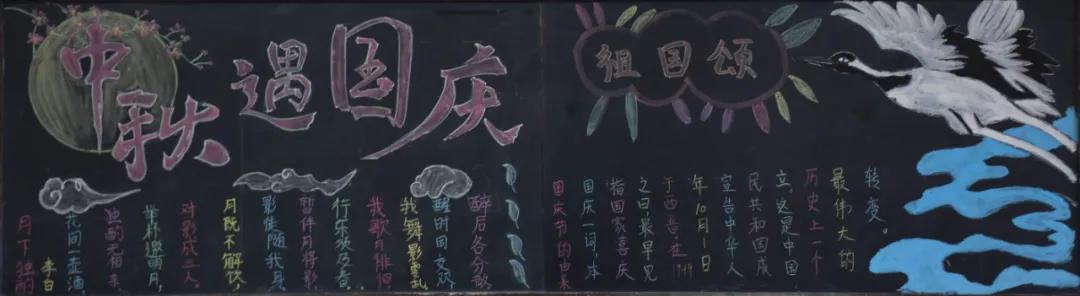 中秋遇国庆
月下独酌
李白
花间一壶酒,
独酌无相亲.
举杯邀明月,
对影成三人.
月既不解饮,
影徒随我身.
暂伴月将影,
行乐须及春.
我歌月徘徊
我舞影零乱
醒时同交欢
醉后各分散
祖国颂
国庆节的由来
国庆一词,本
指国家喜庆
之日最早见
于西晋.在1949
年10月1日
宣告中华人
民共和国成
立,这是中国
历史上一个
最伟大的
转变。